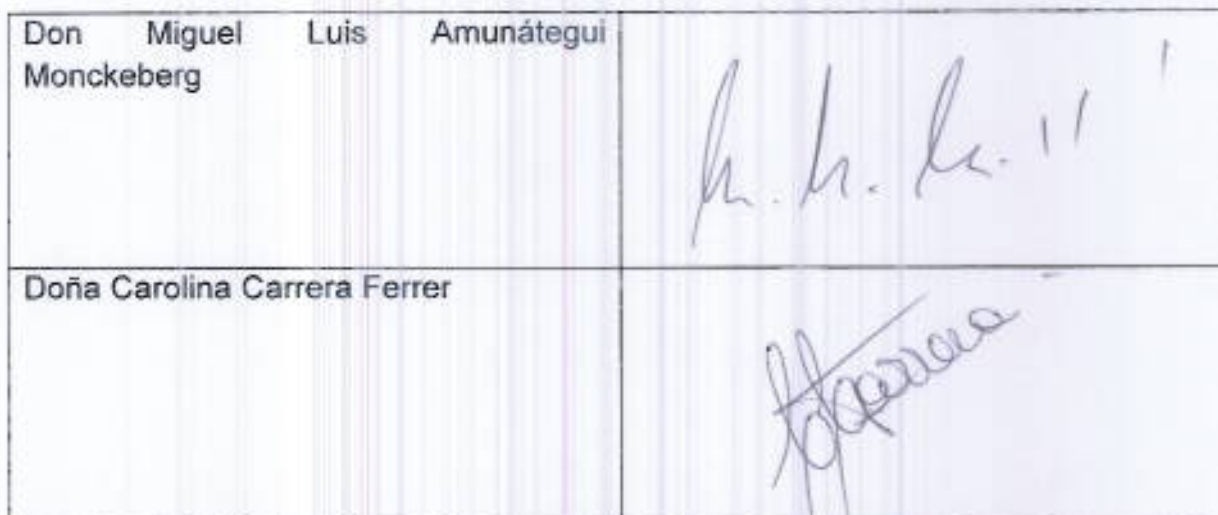 Don Miguel Luis Amunátegui
Monckeberg
Doña Carolina Carrera Ferrer